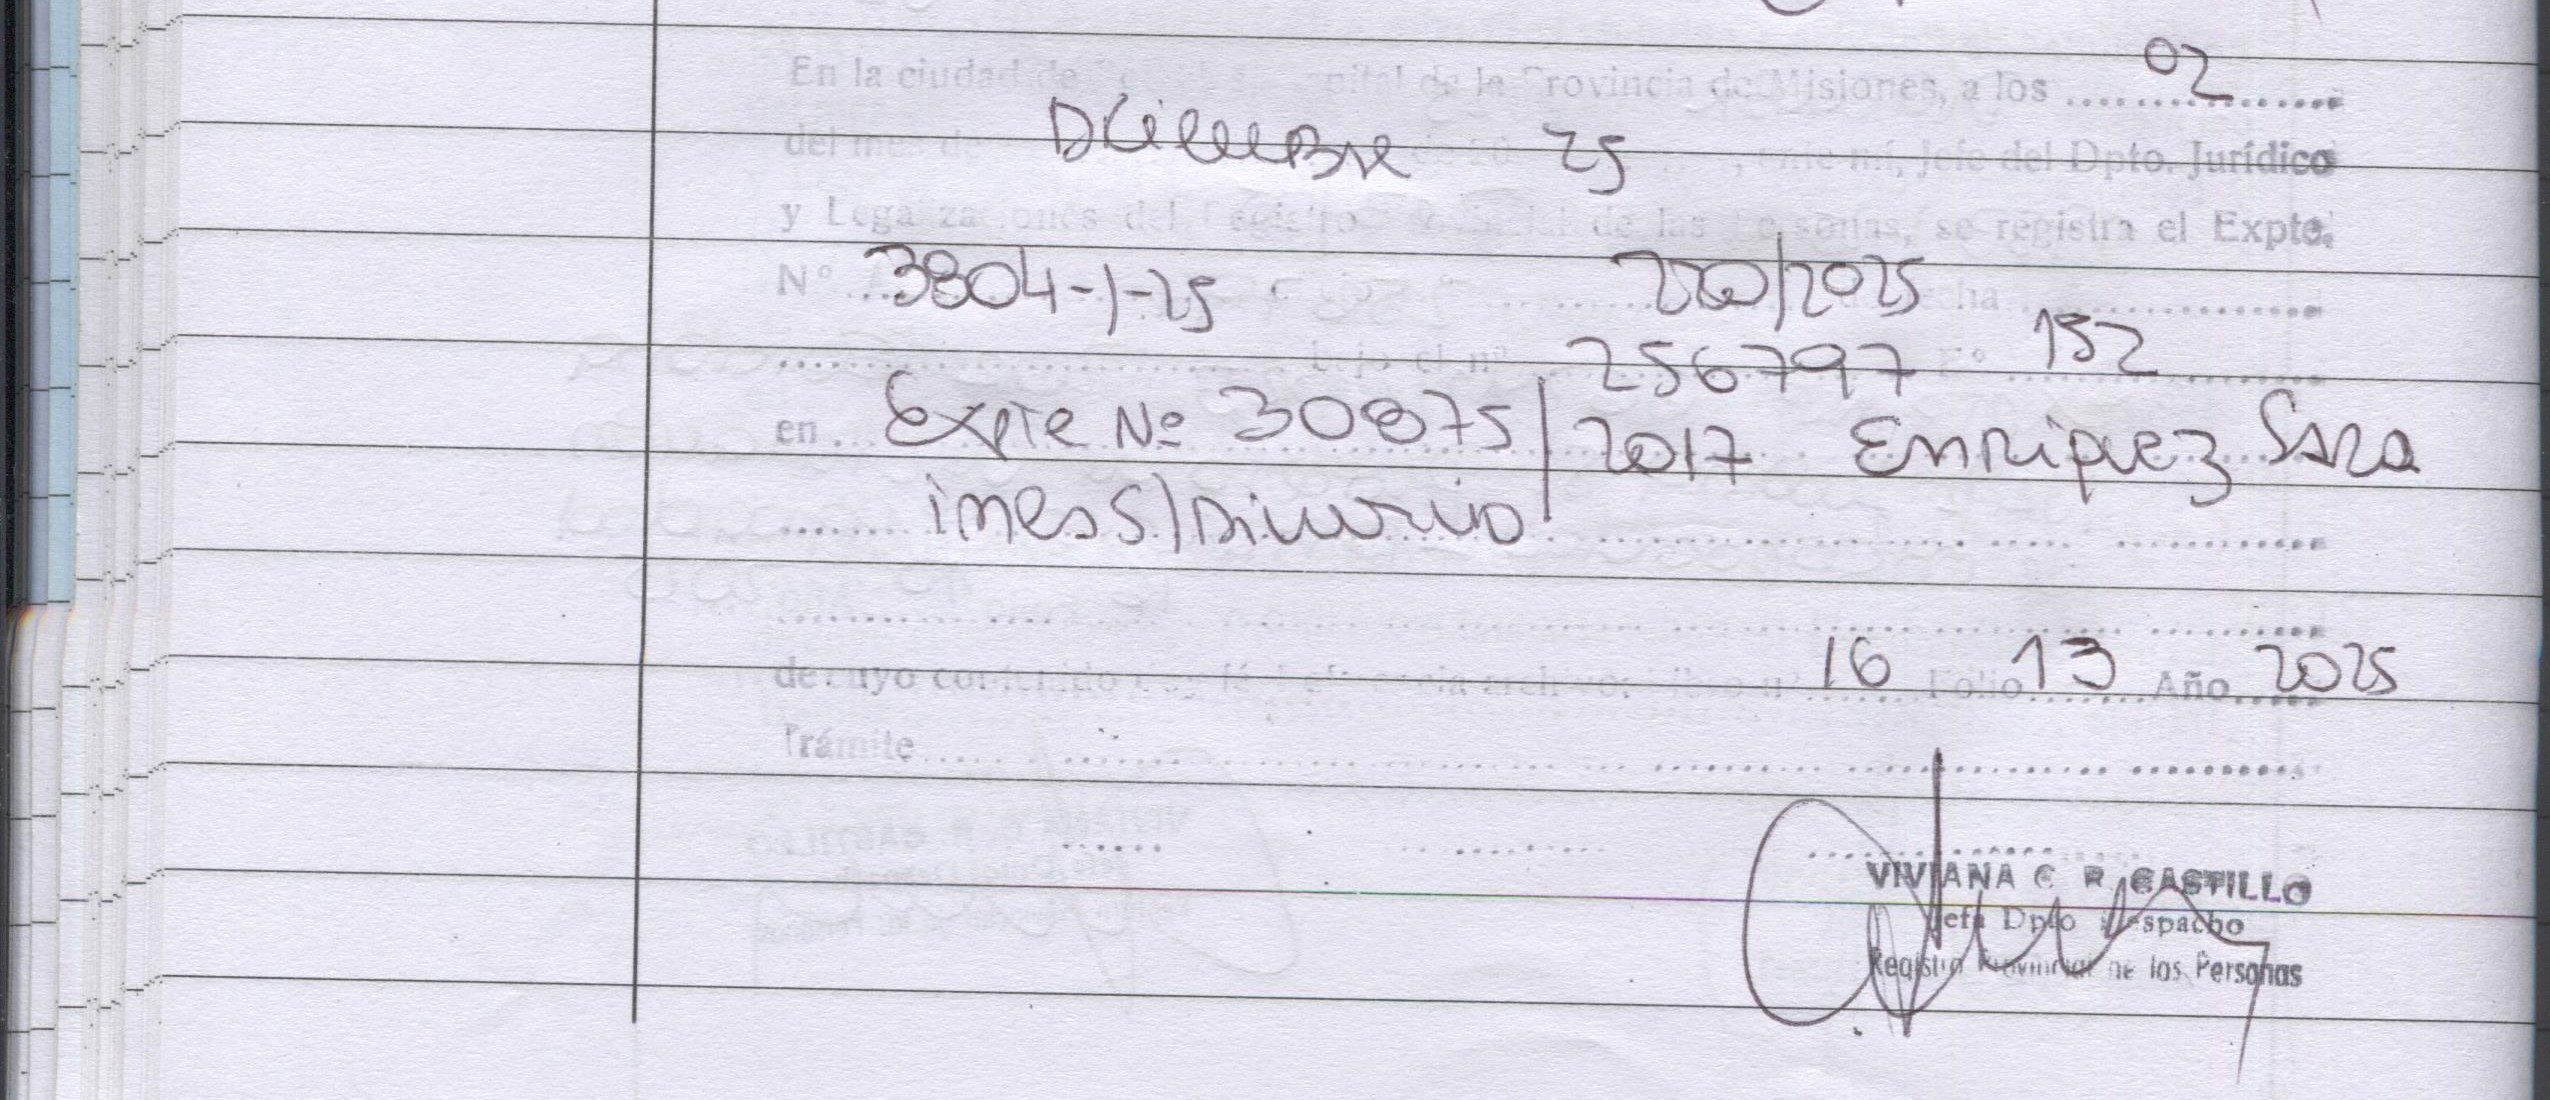 En la ciudad de Capital de la Provincia de Misiones, a los 02
del mes de Diciembre de 20 25, ante mí, Jefe del Dpto. Jurídico
y Legalizaciones del Registro Provincial de las Personas, se registra el Expte.
Nº 3804-1-25 220/2025 fecha
bajo el nº 256797 Fº 152
en Expte Nº 30875/2017 Enriquez Sara
ines S/Divorcio
de cuyo contenido doy fé. Referencia archivo: Libro nº 16 Folio 13 Año 2025
Trámite
VIVIANA C R CASTILLO
Jefa Dpto Despacho
Registro Provincial de las Personas